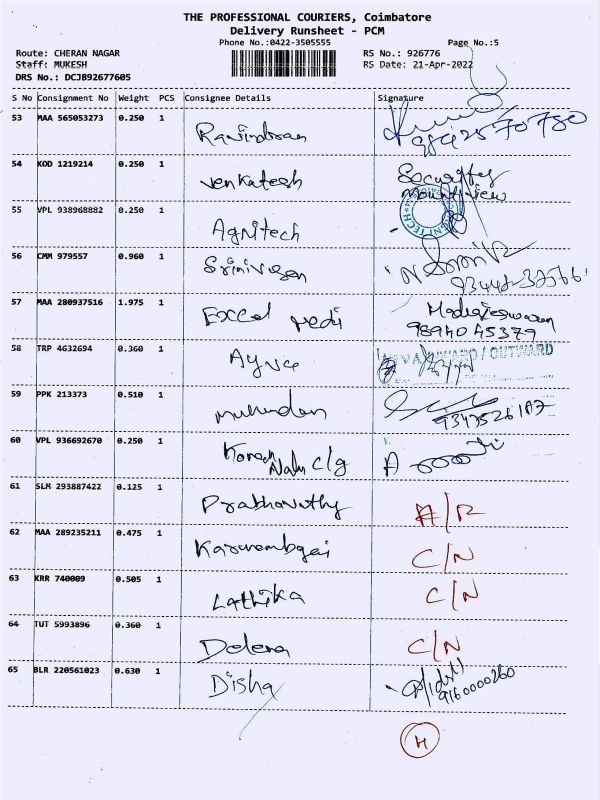 THE PROFESSIONAL COURIERS, Coimbatore
Delivery Runsheet - PCM
Phone No.:0422-3505555
Page No.:5
Route: CHERAN NAGAR
RS No.: 926776
Staff: MUKESH
RS Date: 21-Apr-2022
DRS No.: DCJB92677605
S No Consignment No Weight PCS Consignee Details Signature
53 MAA 565053273 0.250 1 Ravindran
54 KOD 1219214 0.250 1 Venkatesh Security
Mountview
55 VPL 938968882 0.250 1 Agnitech
56 CMM 979557 0.960 1 Srinivasan
57 MAA 280937516 1.975 1 Excel Medi
9894045379
58 TRP 4632694 0.360 1 INWARD / OUTWARD
59 PPK 213373 0.510 1 Mukundan
60 VPL 936692670 0.250 1
61 SLM 293887422 0.125 1 Prabhavathy A/R
62 MAA 289235211 0.475 1 C/N
63 KRR 740009 0.505 1 Lathika C/N
64 TUT 5993896 0.360 1 C/N
65 BLR 220561023 0.630 1 Disha
9160000260
M